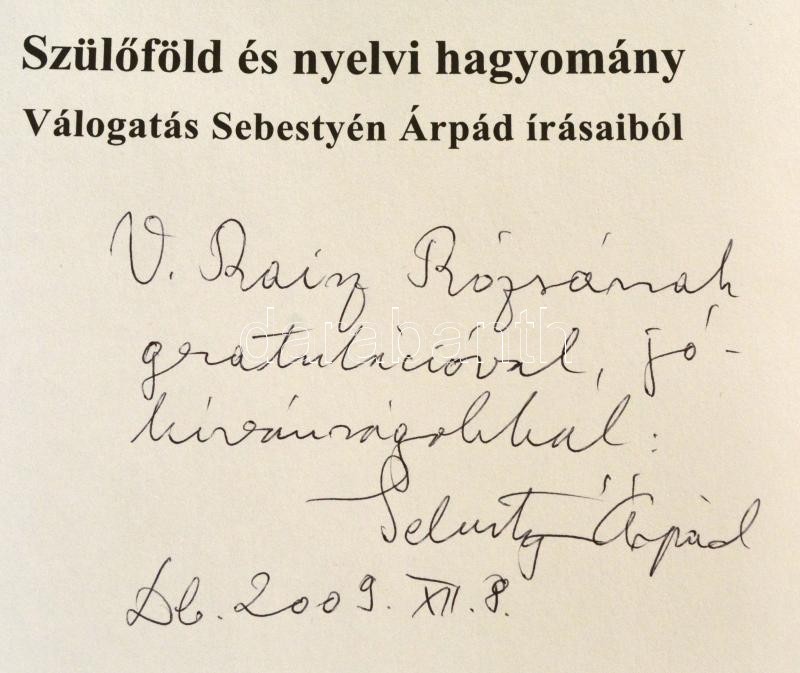 Szülőföld és nyelvi hagyomány
Válogatás Sebestyén Árpád írásaiból
V. Raisz Rózsának
geratulációval, jó-
kívánságokkal:
Sebestyén Árpád
Db. 2009. XII. 8.
darabanth